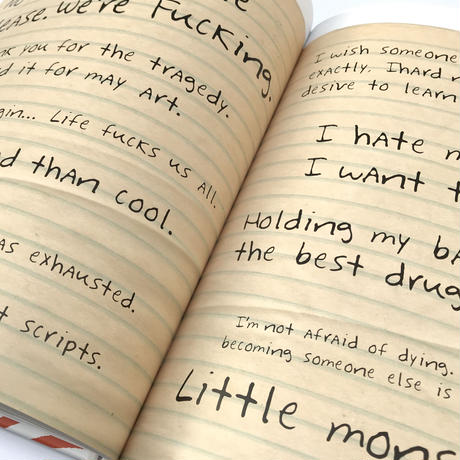 ease. We're Fucking.
you for the tragedy.
it for may Art.
Life fucks us All.
thAn cool.
exhAusted.
scripts.
I wish someone
exActly. IhArd
desive to leArn
I hAte
I wAnt
Holding my
the best drug
I'm not AfrAid of dying.
becoming someone else is
Little mons